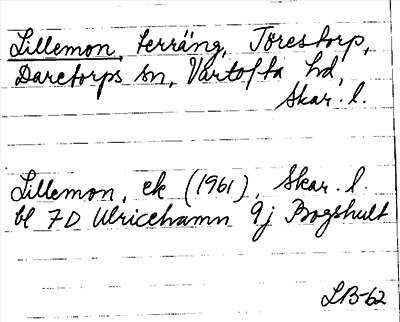 Lillemon, terräng, Torestorp,
Daretorps sn, Vartofta hd,
Skar. l.
Lillemon, ek (1961), Skar. l.
bl 7D Ulricehamn 9j Bogshult
LB-62